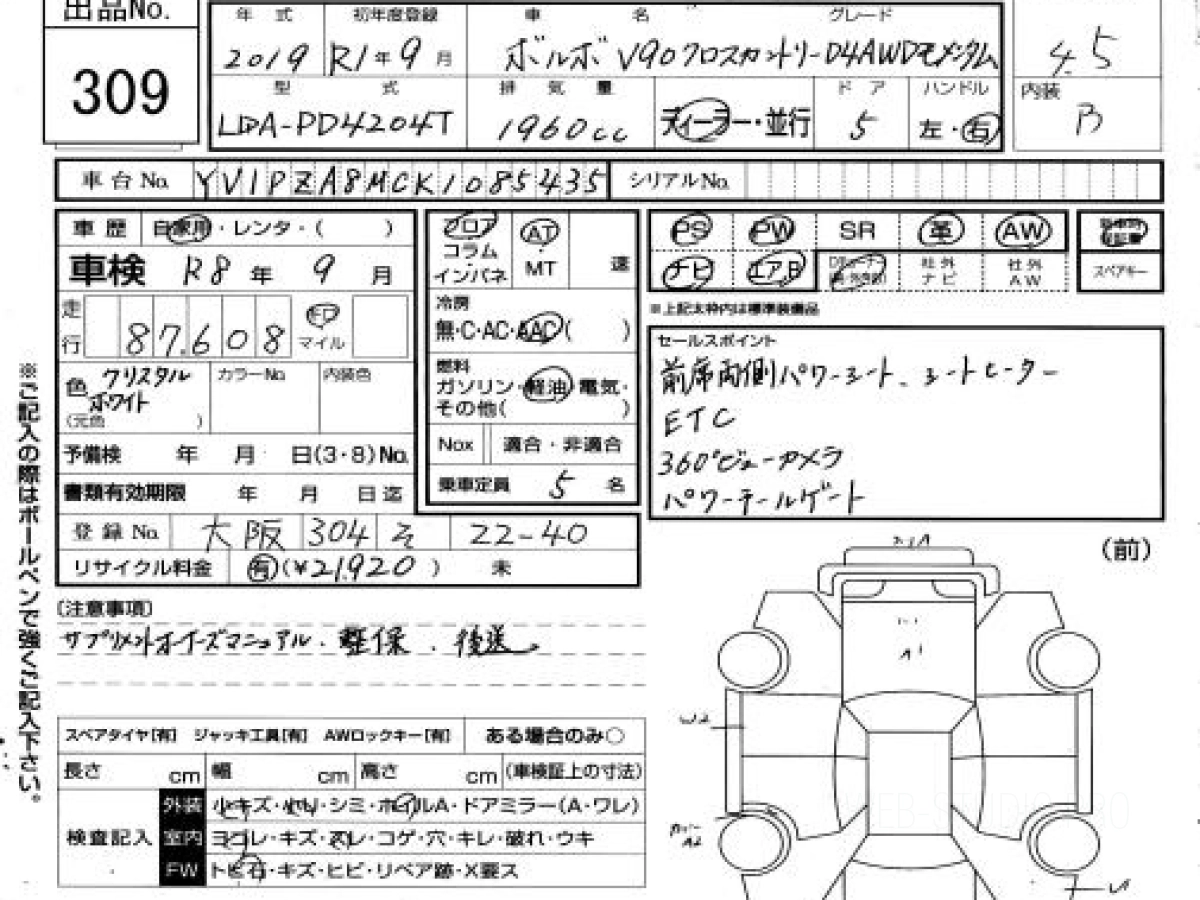 出品No.
309
年式 初年度登録 車名 グレード
2019 R1年9月 ボルボ V90クロスカントリーD4AWDモメンタム
4.5
型式 排気量 ドア ハンドル
LDA-PD4204T 1960cc ディーラー・並行 5 左・右
内装
B
車台No. YV1PZA8MCK1085435 シリアルNo.
車歴 自家用・レンタ・( )
車検 R8年9月
走行 87,608 km マイル
色 クリスタルホワイト カラーNo. 内装色
(元色 )
予備検 年 月 日(3・8)No.
書類有効期限 年 月 日迄
登録No. 大阪 304 そ 22-40
リサイクル料金 有(¥21,920) 未
フロア AT
コラム
インパネ MT 速
冷房
無・C・AC・AAC( )
燃料
ガソリン・軽油・電気・
その他( )
Nox 適合・非適合
乗車定員 5 名
PS PW SR 革 AW
ナビ エアB 社外ナビ 社外AW
スペアキー
※上記太枠内は標準装備品
セールスポイント
前席両側パワーシート、シートヒーター
ETC
360°ビューカメラ
パワーテールゲート
(注意事項)
後送。
スペアタイヤ[有] ジャッキ工具[有] AWロックキー[有] ある場合のみ○
長さ cm 幅 cm 高さ cm (車検証上の寸法)
検査記入
外装 小キズ・ ・シミ・ホイルA・ドアミラー(A・ワレ)
室内 ヨゴレ・キズ・スレ・コゲ・穴・キレ・破れ・ウキ
FW トビ石・キズ・ヒビ・リペア跡・X要ス
※ご記入の際はボールペンで強くご記入下さい。
(前)
A1
W2
カバー
A2